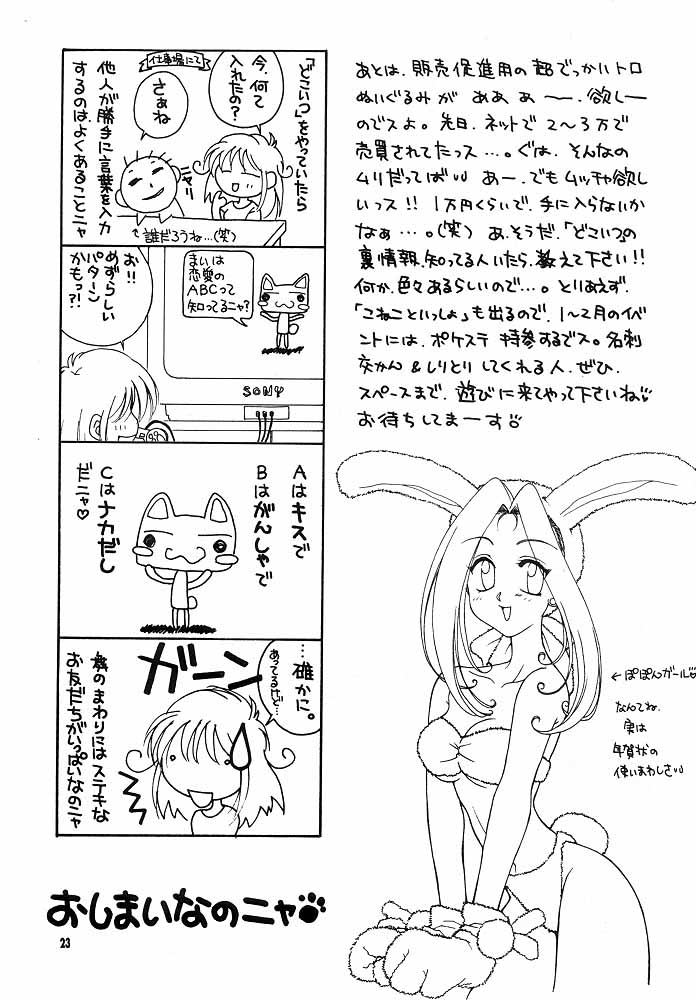 「どこいつ」をやっていたら
今、何て
入れたの?
仕事場にて
さぁね
ニヤリ
他人が勝手に言葉を入力
するのは、よくあることニャ
誰だろうね…(笑)
まいは
恋愛の
ABCって
知ってるニャ?
お!!
めずらしい
パターン
かもっ?!
SONY
Aはキスで
Bはがんしゃで
Cはナカだし
だニャ♡
…確かに。
あってるけど…
ガーン
僕のまわりにはステキな
お友だちがいっぱいなのニャ
おしまいなのニャ
23
あとは、販売促進用の超でっかいトロ
ぬいぐるみが あぁ ぁ〜、欲しー
のでスよ。先日、ネットで 2〜3万で
売買されてたっス…。ぐは、そんなの
ムリだってば あー、でもムッチャ欲し
いっス!! 1万円くらいで、手に入らないか
なぁ…。(笑) あ、そうだ、「どこいつ」の
裏情報、知ってる人いたら、教えて下さい!!
何か、色々あるらしいので…。とりあえず、
「こねこといっしょ」も出るので、1〜2月のイベ
ントには、ポケステ 持参するでス。名刺
交かん&しりとり してくれる人、ぜひ、
スペースまで、遊びに来てやって下さいね♡
お待ちしてまーす
←ぽぽんガール♡
なんてね、
実は
年賀状の
使いまわしさ